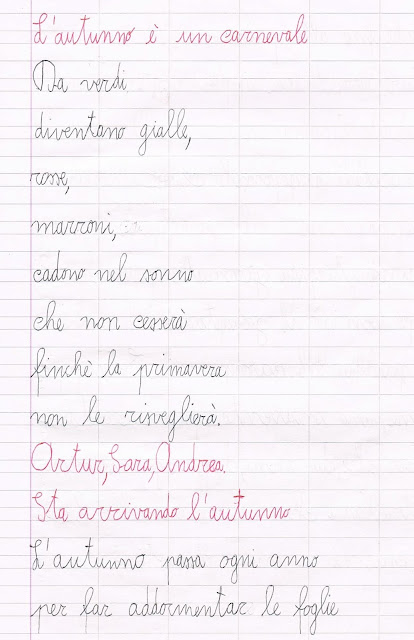 L'autunno è un carnevale
Da verdi
diventano gialle,
rosse,
marroni,
cadono nel sonno
che non cesserà
finchè la primavera
non le risveglierà.
Artur, Sara, Andrea.
Sta arrivando l'autunno
L'autunno passa ogni anno
per far addormentar le foglie